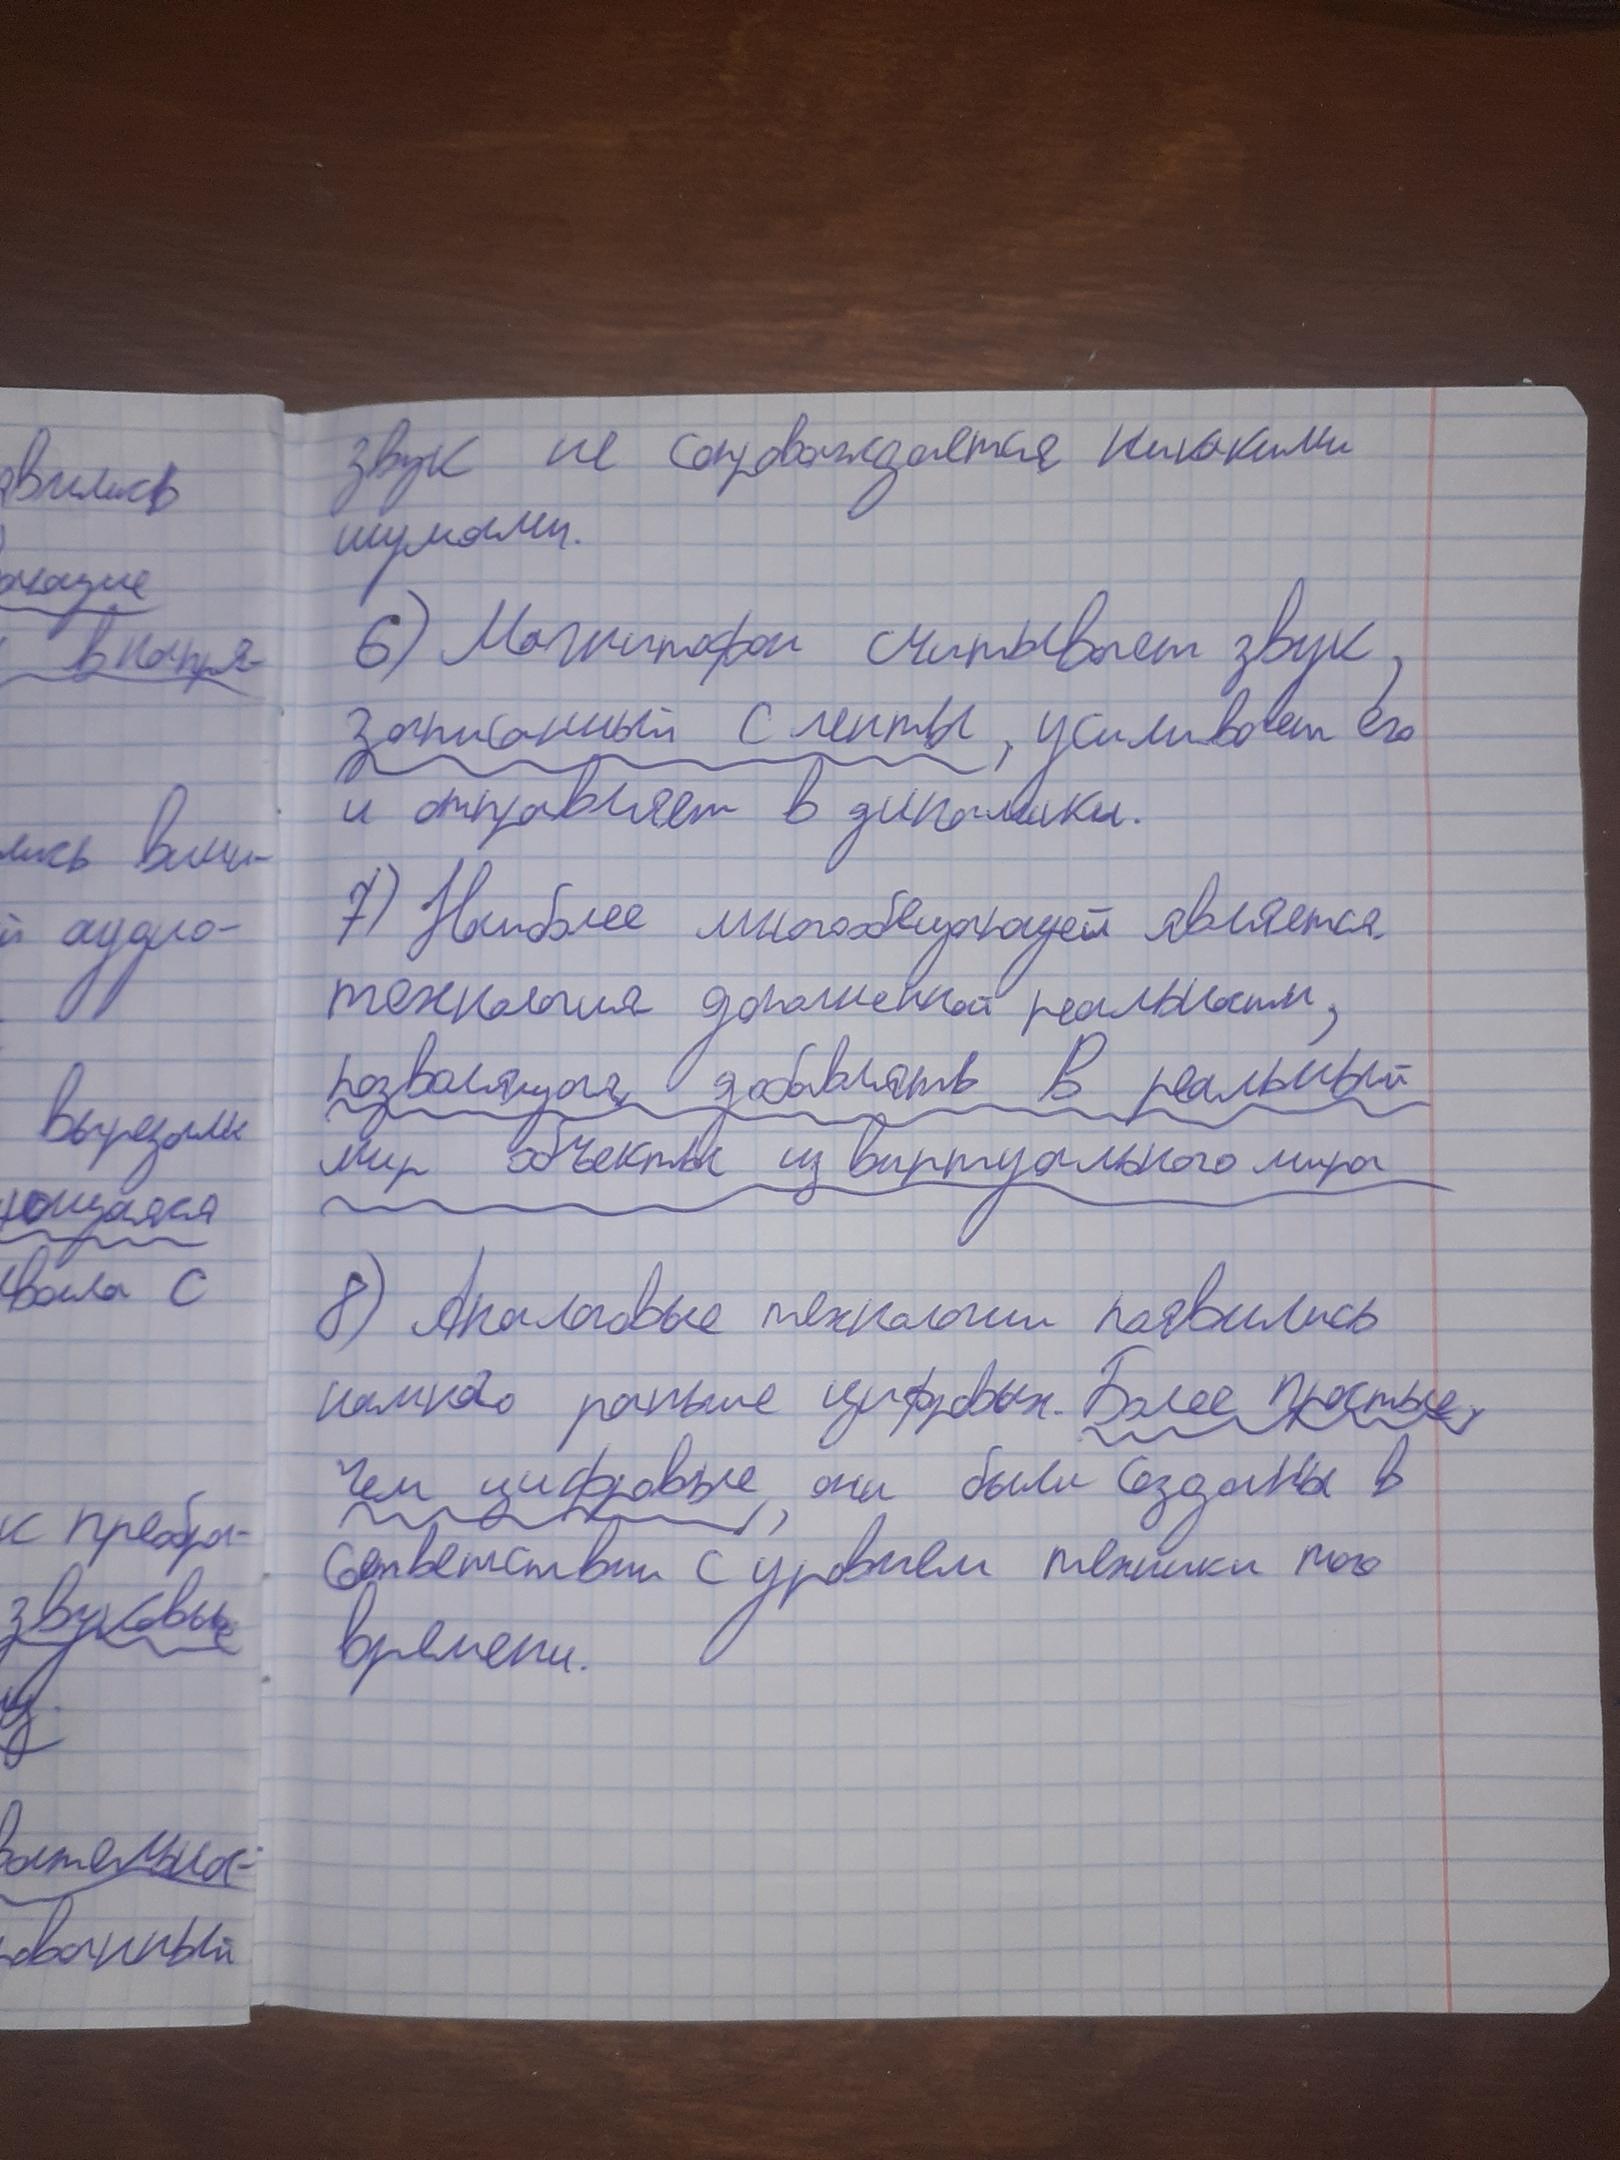 явились
ающие
в напря-
лись вини-
й аудио-
вырезали
ющаяся
с
к преобра-
звуковые
вательнос-
рованный
звук не сопровождается никакими
шумами.
6) Магнитофон считывает звук,
записанный с ленты, усиливает его
и отправляет в динамики.
7) Наиболее многообещающей является
технология дополненной реальности,
позволяющая добавлять в реальный
мир объекты из виртуального мира
8) Аналоговые технологии появились
намного раньше цифровых. Более простые,
чем цифровые, они были созданы в
соответствии с уровнем техники того
времени.